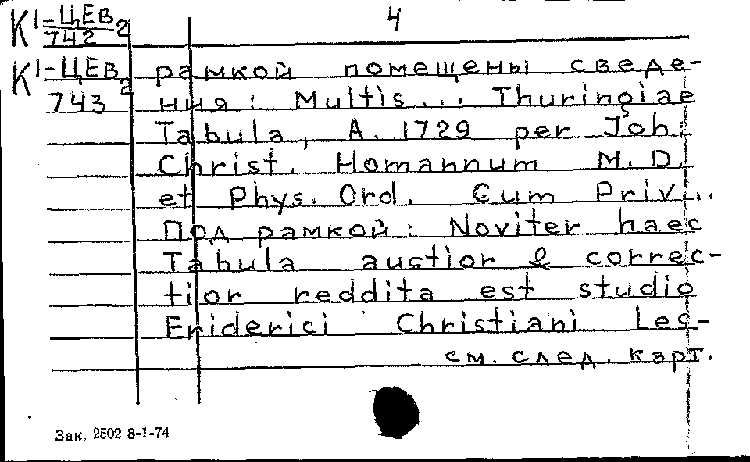 К1-ЦЕВ2 4
742
К1-ЦЕВ2 рамкой помещены сведе-
743 ния: Multis... Thuringiae
Tabula, A. 1729 per Joh.
Christ. Homannum M. D.
et Phys. Ord. Cum Priv...
Под рамкой: Noviter haec
Tabula auctior & correc-
tior reddita est studio
Friderici Christiani Les-
см. след. карт.
Зак. 2502 8-1-74